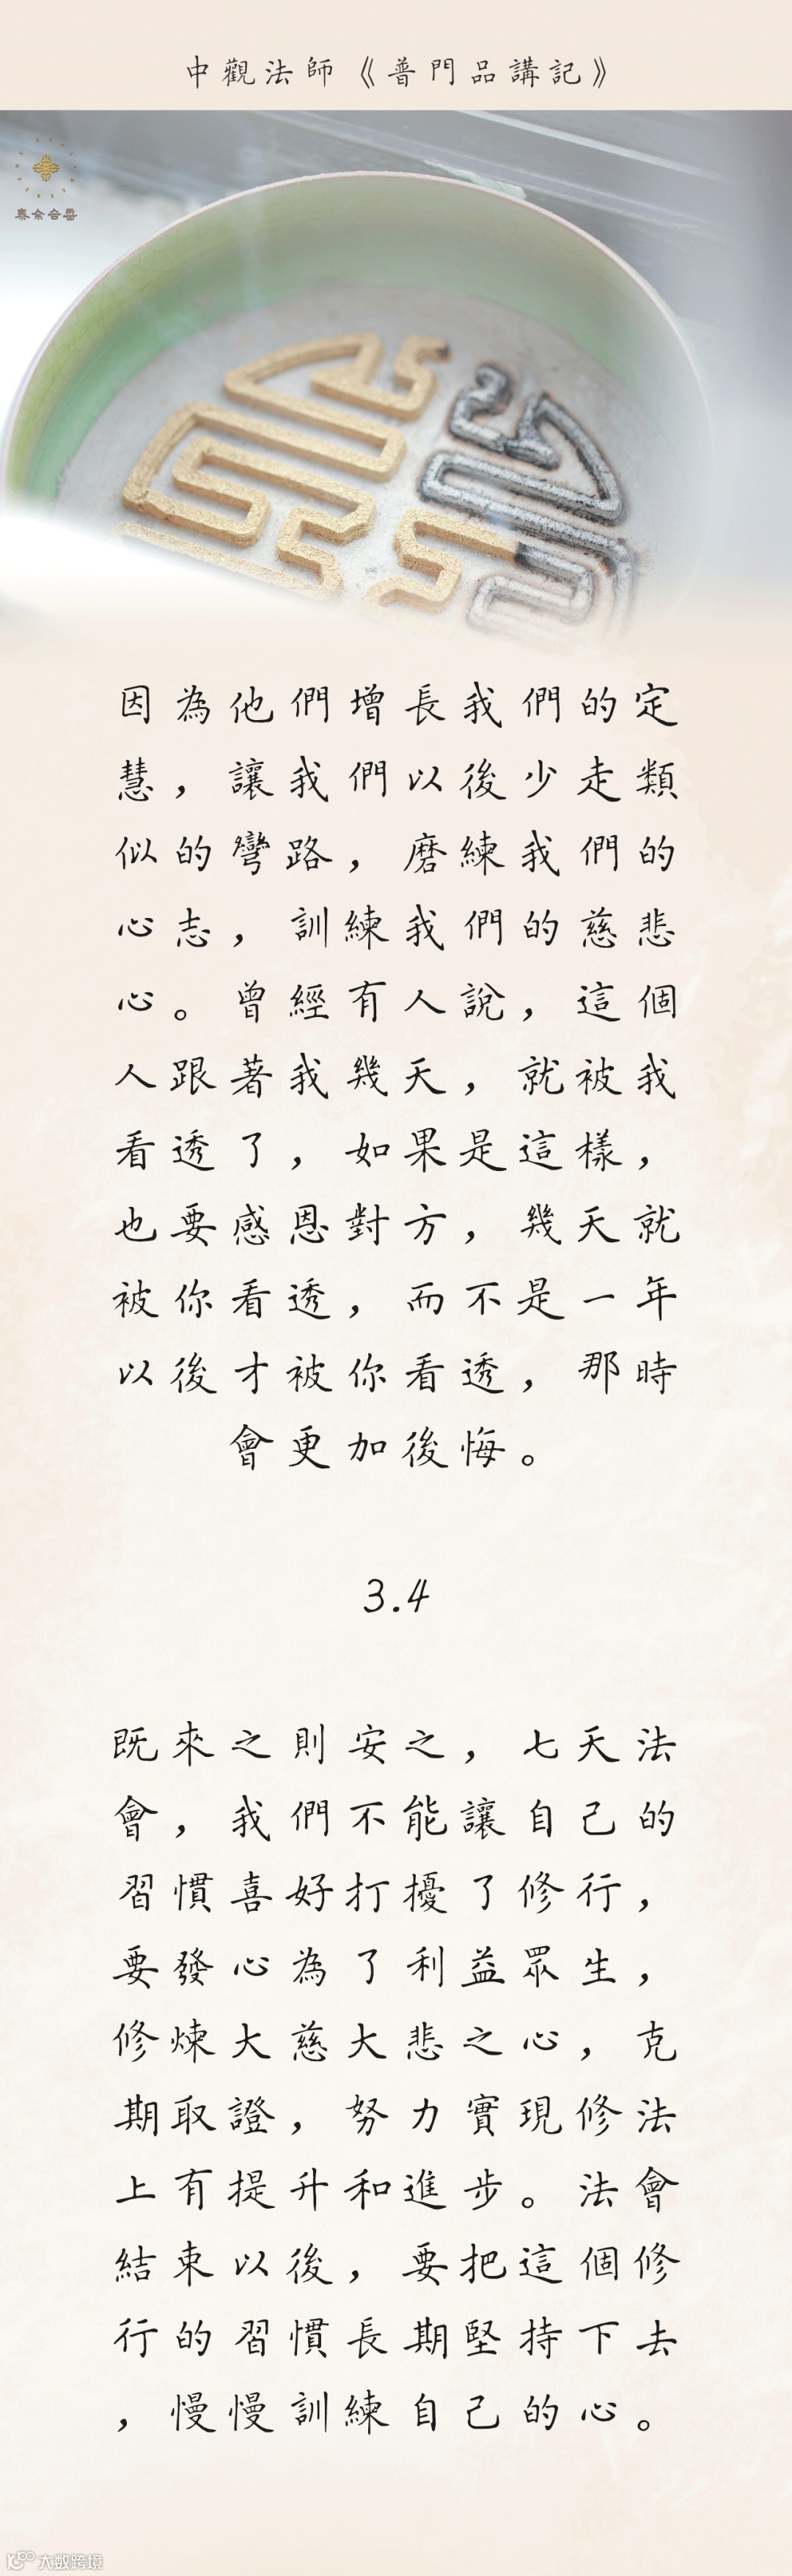 中觀法師《普門品講記》
泰余合香
因為他們增長我們的定
慧，讓我們以後少走類
似的彎路，磨練我們的
心志，訓練我們的慈悲
心。曾經有人說，這個
人跟著我幾天，就被我
看透了，如果是這樣，
也要感恩對方，幾天就
被你看透，而不是一年
以後才被你看透，那時
會更加後悔。
3.4
既來之則安之，七天法
會，我們不能讓自己的
習慣喜好打擾了修行，
要發心為了利益眾生，
修煉大慈大悲之心，克
期取證，努力實現修法
上有提升和進步。法會
結束以後，要把這個修
行的習慣長期堅持下去
，慢慢訓練自己的心。
大数跨境